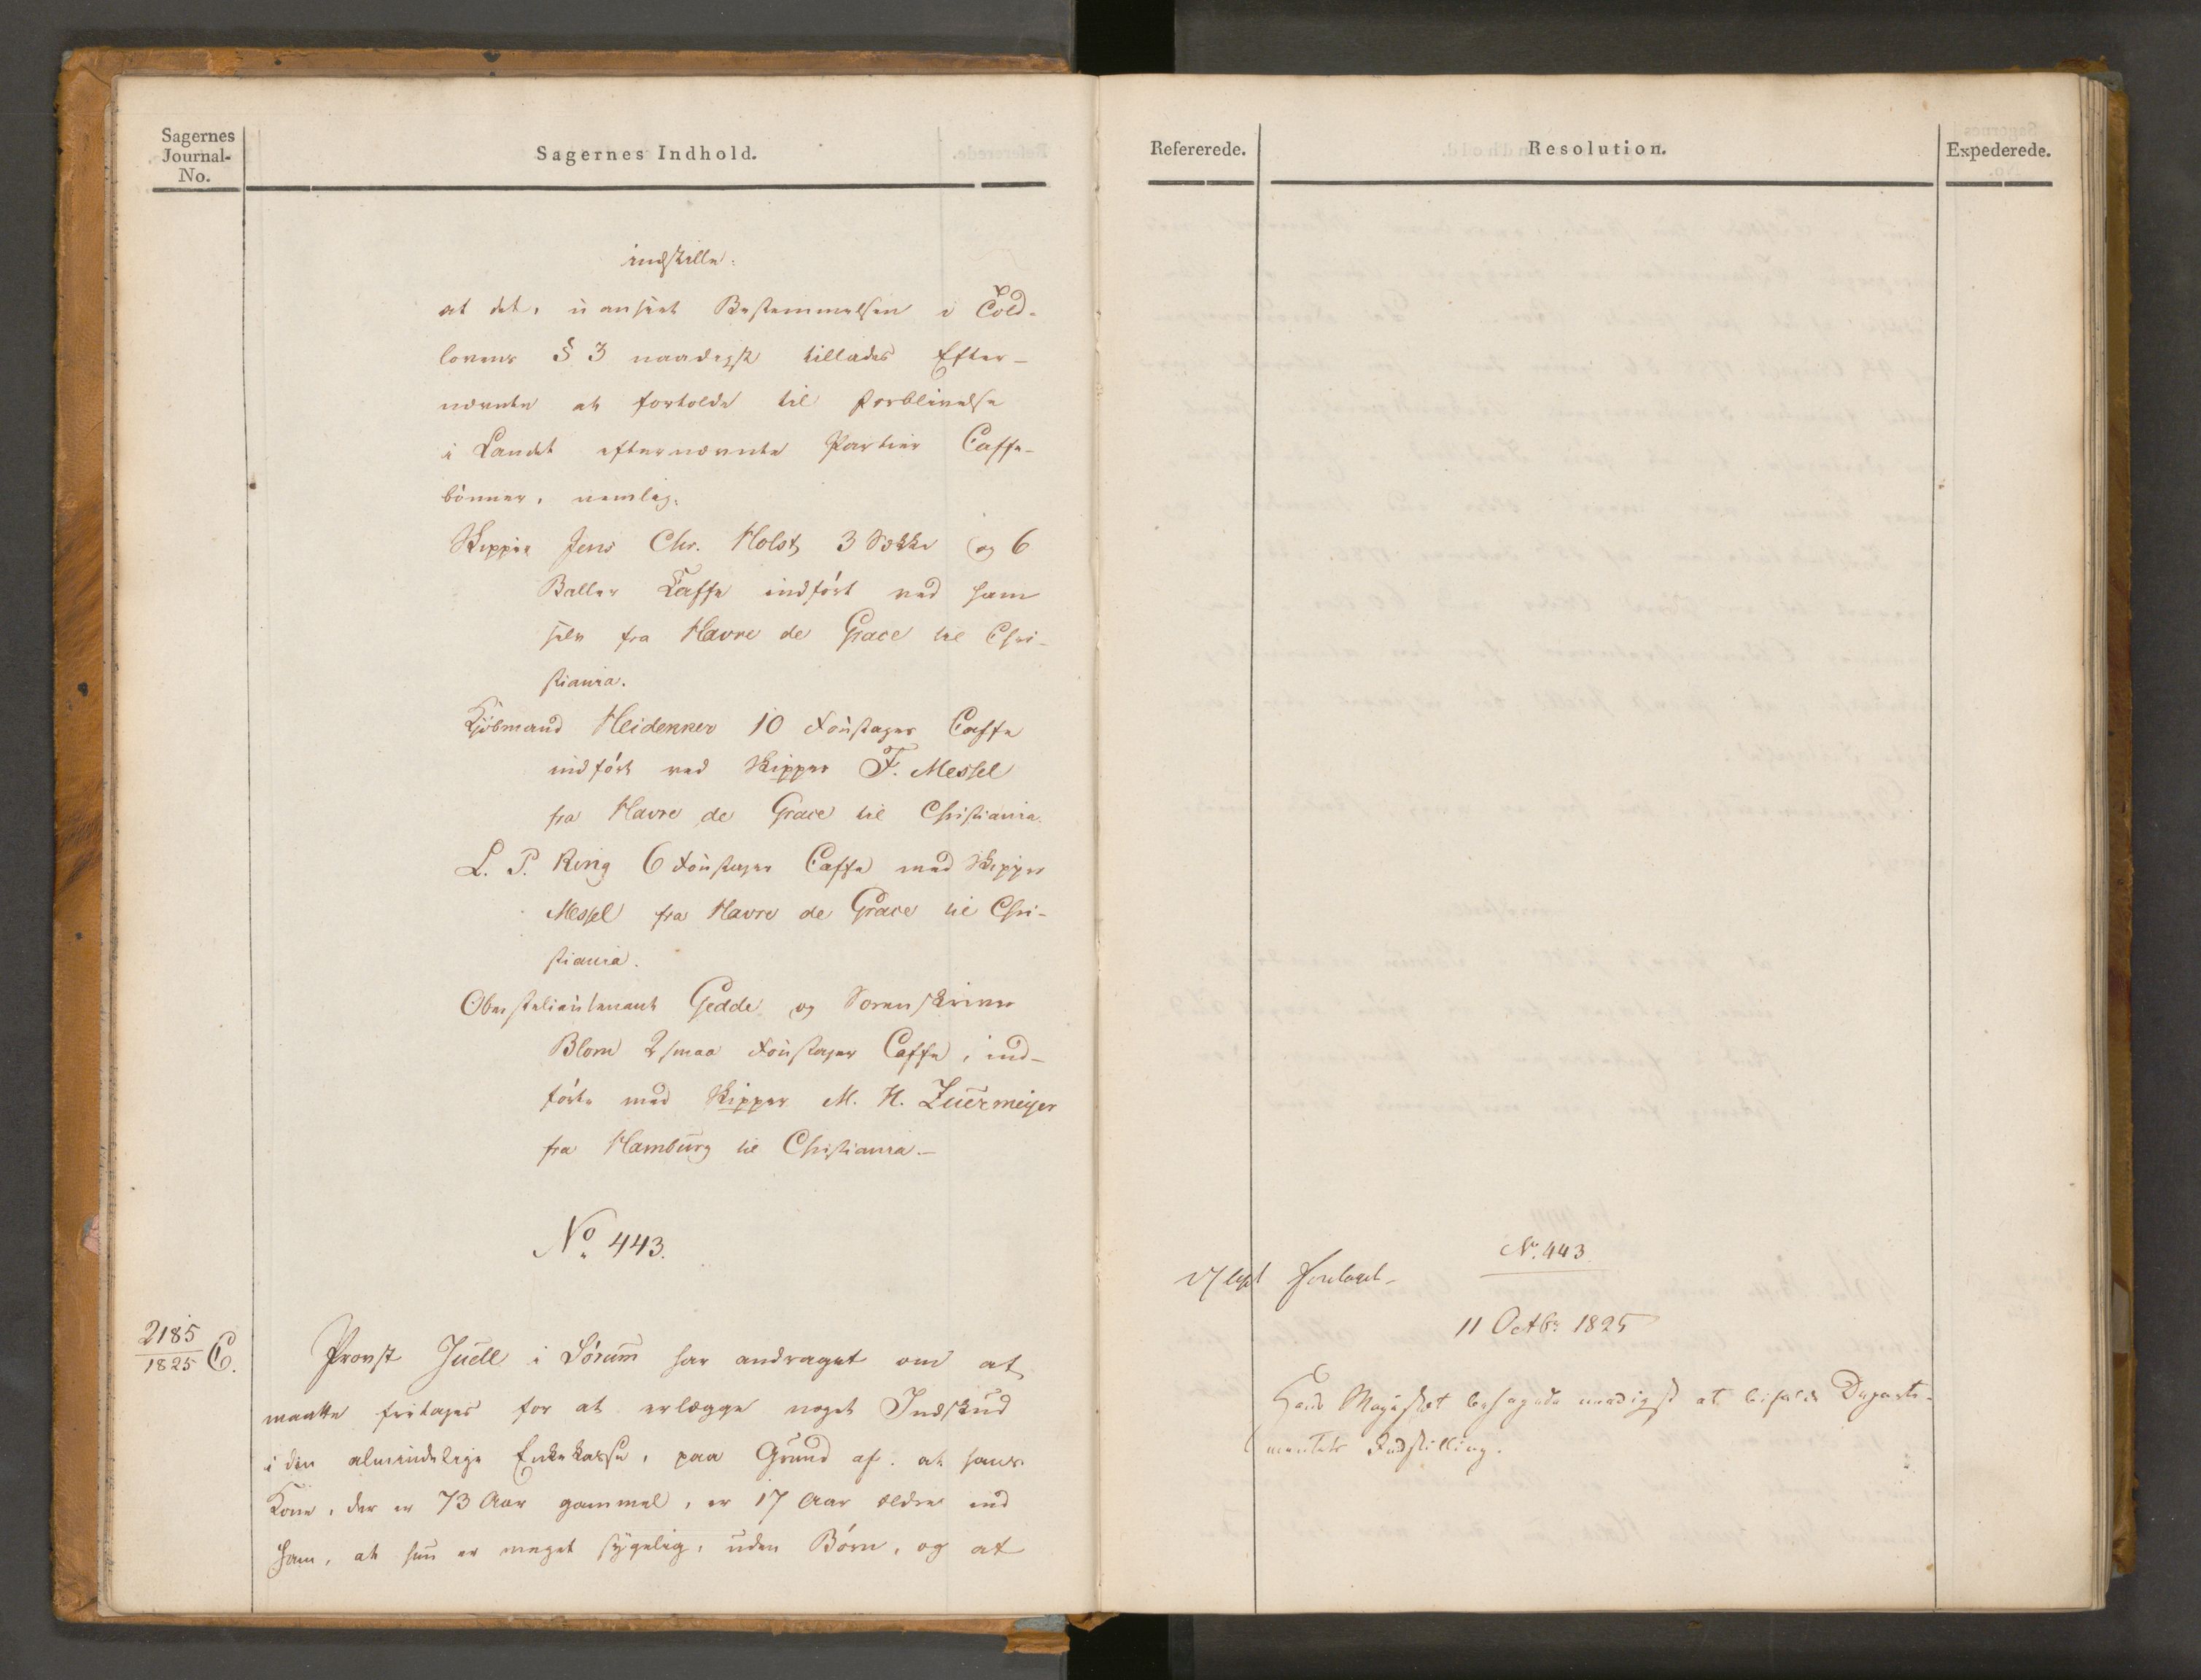 Sagernes
Journal-
No.
Sagernes Indhold.
indstille:
at det, uanseet Bestemmelsen i Told-
lovens § 3 naadigst tillades Efter-
nævnte at fortolde til Forblivelse
i Landet efternævnte Partier Caffe-
bønner, nemlig:
Skipper Jens Chr. Holst 3 Sække og 6
Baller Caffe indført ved ham
selv fra Havre de Grace til Chri-
stiania.
Kjøbmand Heidenner 10 Foustager Caffe
indført ved Skipper F. Messel
fra Havre de Grace til Christiania.
L. P. Ring 6 Foustager Caffe med Skipper
Messel fra Havre de Grace til Chri-
stiania.
Oberstlieutenant Gedde og Sorenskriver
Blom 2 smaa Foustager Caffe, ind-
førte med Skipper M. H. Zuermeijer
fra Hamburg til Christiania.-
No. 443.
2185
1825 C.
Provst Juell i Sørum har andraget om at
maatte fritages for at erlægge noget Indskud
i den almindelige Enkekasse, paa Grund af: at hans
Kone, der er 73 Aar gammel, er 17 Aar ældre end
ham, at hun er meget sygelig, uden Børn, og at
Refererede.
Resolution.
Expederede.
No. 443
Sept forelaget-
11 Octbr 1825
Hans Majestæt behagede naadigst at bifalde Departe-
mentets Indstilling.